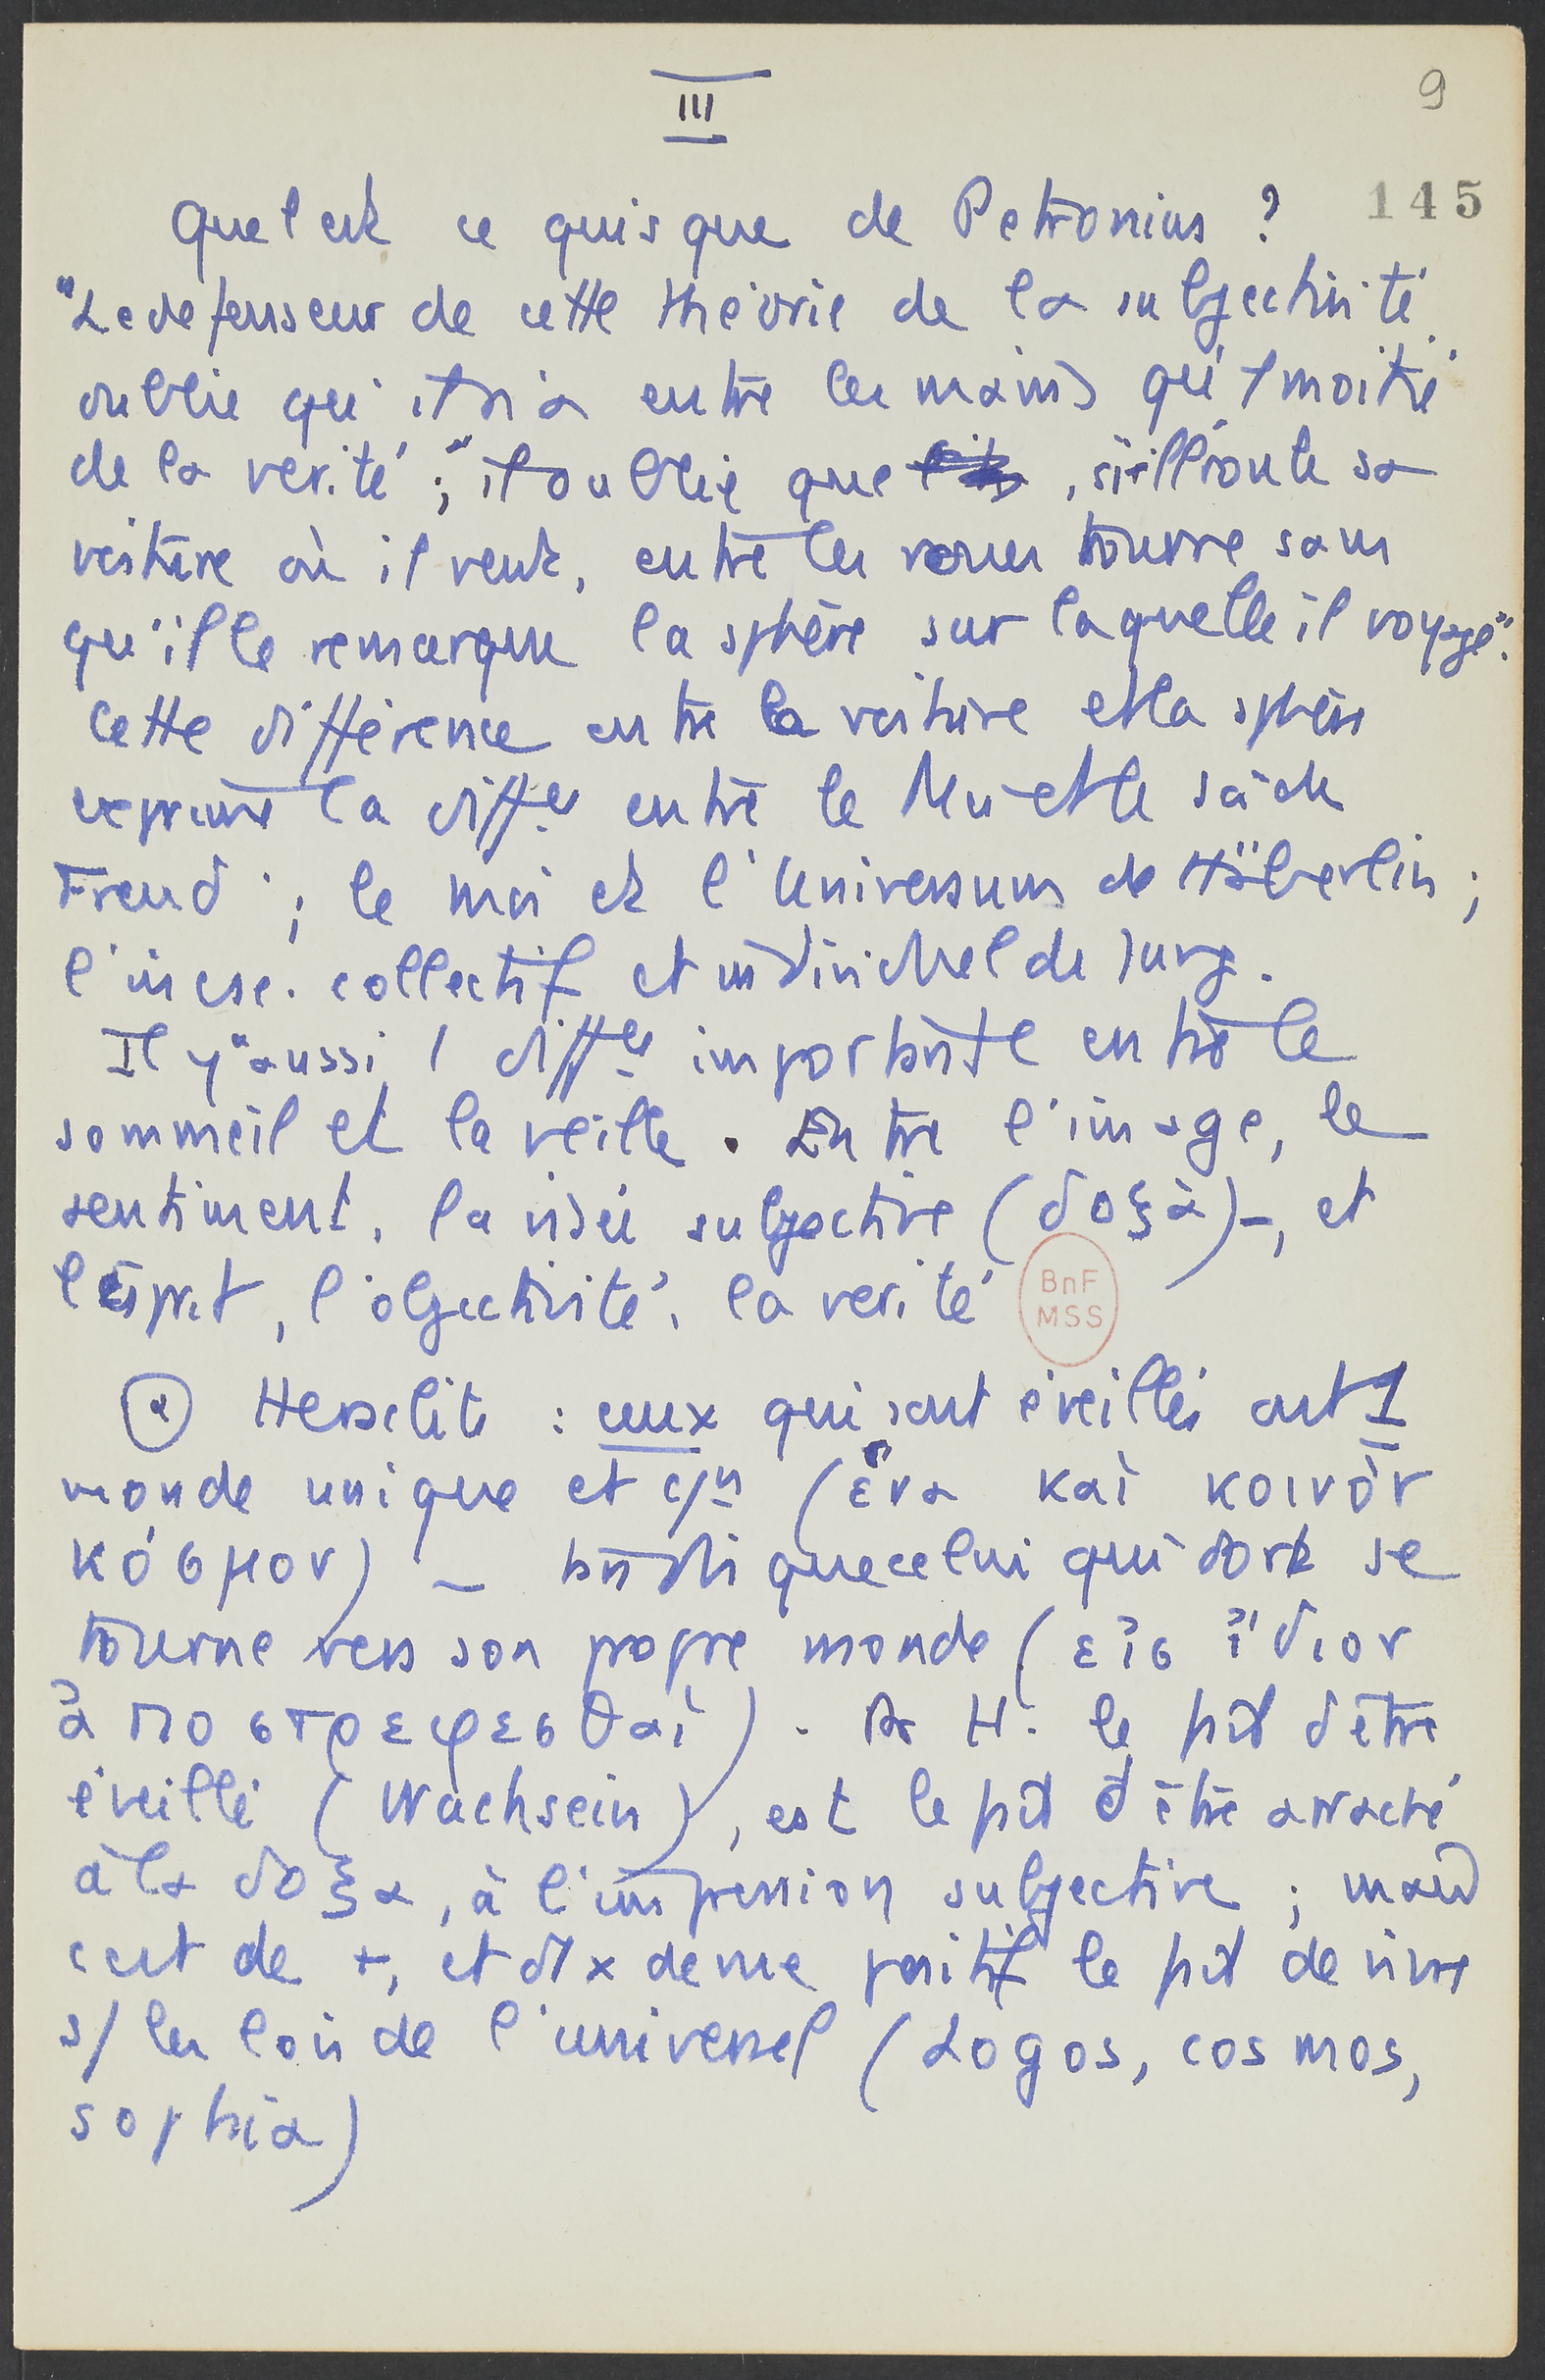 III
9
145
Quel est ce quisque de Petronius ?
"Le défenseur de cette théorie de la subjectivité
oublie qu'il n'a entre les mains qu'1 moitié
de la vérité ;" il oublie que , s'il route sa
voiture où il veut, entre les roues tourne sans
qu'il le remarque la sphère sur laquelle il voyage".
Cette différence entre la voiture et la sphère
exprime la diffce entre le Moi et le soi de
Freud ; le moi et l'Universum de Häberlin ;
l'incsc. collectif et individuel de Jung.
Il y a aussi 1 diffce importante entre le
sommeil et la veille. Entre l'image, le
sentiment, la visée subjective (δοξα)-, et
l'Esprit, l'objectivité, la vérité
BnF
MSS
α Heraclite : ceux qui sont éveillés ont 1
monde unique et c/n (ἕνα καὶ κοινὸν
κόσμον) – tandis que celui qui dort se
tourne vers son propre monde (εἰς ἴδιον
ἀποστρεφεσθαι). Pr H. le fait d'être
éveillé (Wachsein), est le fait d'être arraché
à la δοξα, à l'impression subjective ; mais
c'est de +, et d'1 x de vue positif le fait de vivre
s/ les lois de l'universel (Logos, cosmos,
sophia)